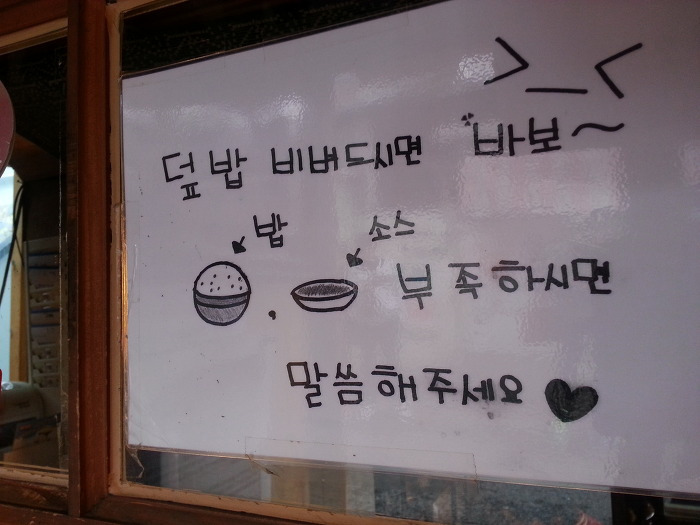 >_<
덮밥 비벼드시면 바보~
밥 소스
, 부족하시면
말씀해주세요 ♥